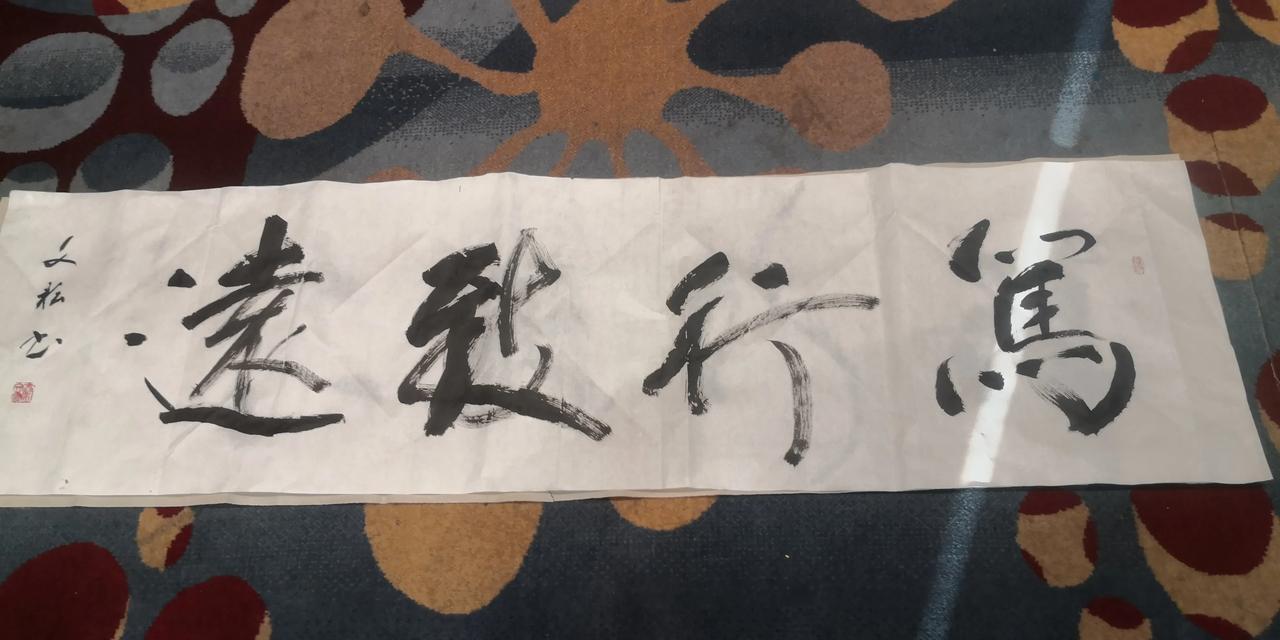 篤行致遠
文松书